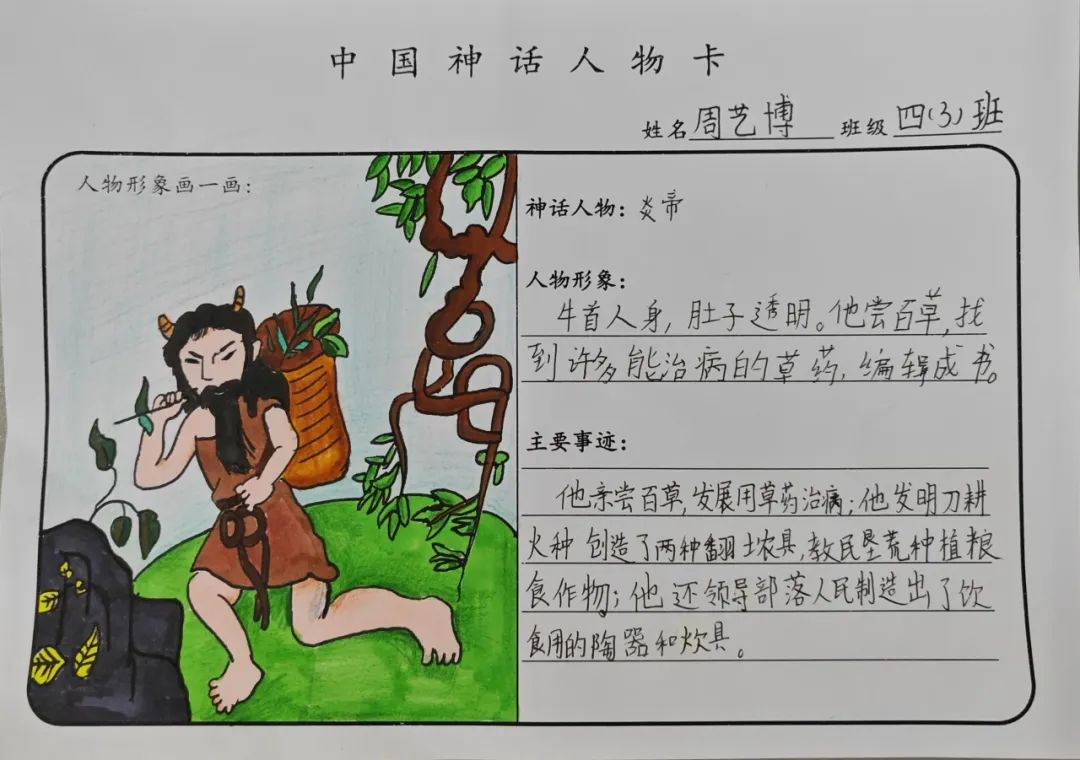 中国神话人物卡
姓名周艺博 班级四(3)班
人物形象画一画：
神话人物：炎帝
人物形象：
牛首人身，肚子透明。他尝百草，找
到许多能治病的草药，编辑成书。
主要事迹：
他亲尝百草，发展用草药治病；他发明刀耕
火种创造了两种翻土农具，教民垦荒种植粮
食作物；他还领导部落人民制造出了饮
食用的陶器和炊具。